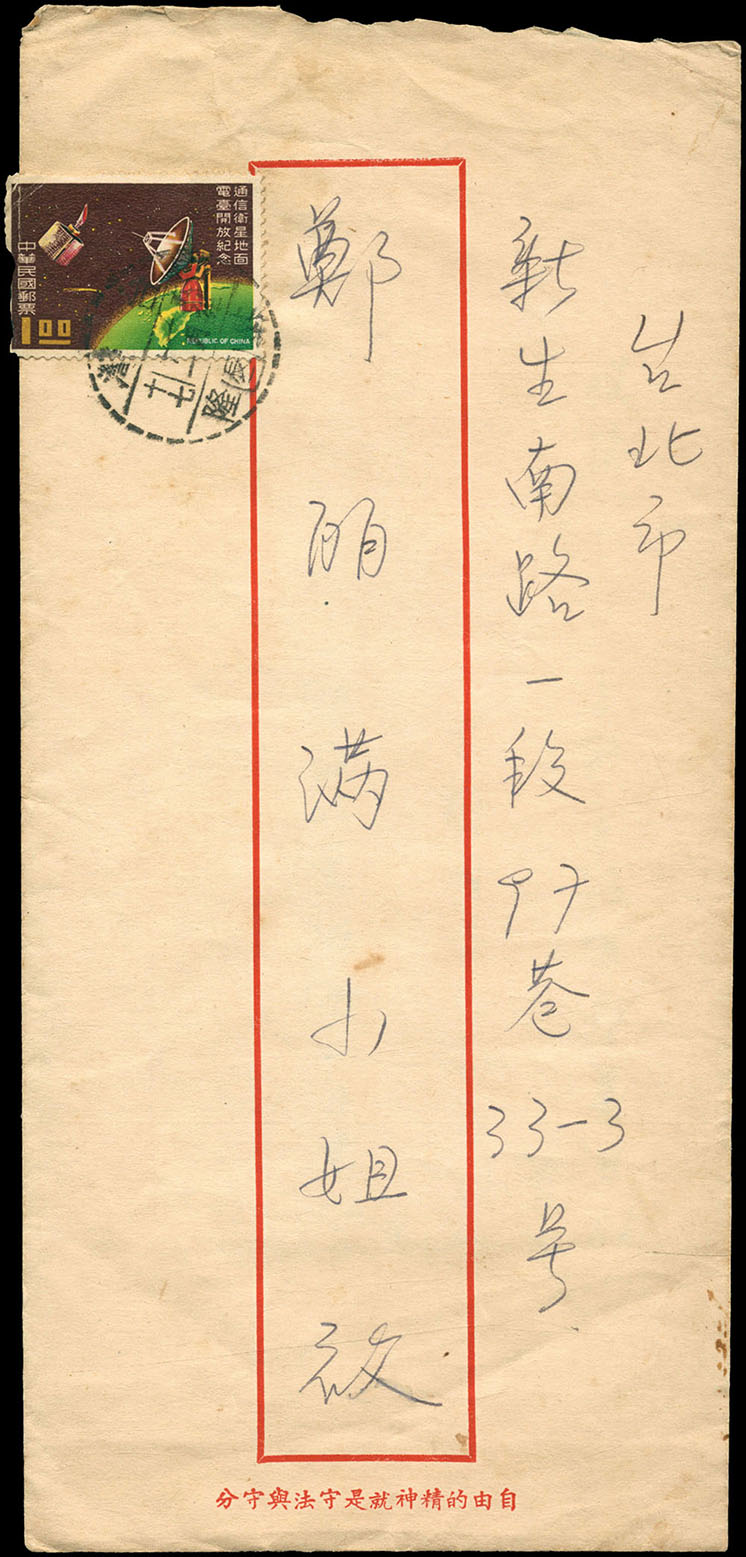 台北市
新生南路一段97巷
33-3号
鄭丽滿小姐啟
通信衛星地面
電臺開放紀念
中華民國郵票
1 00
REPUBLIC OF CHINA
自由的精神就是守法與守分